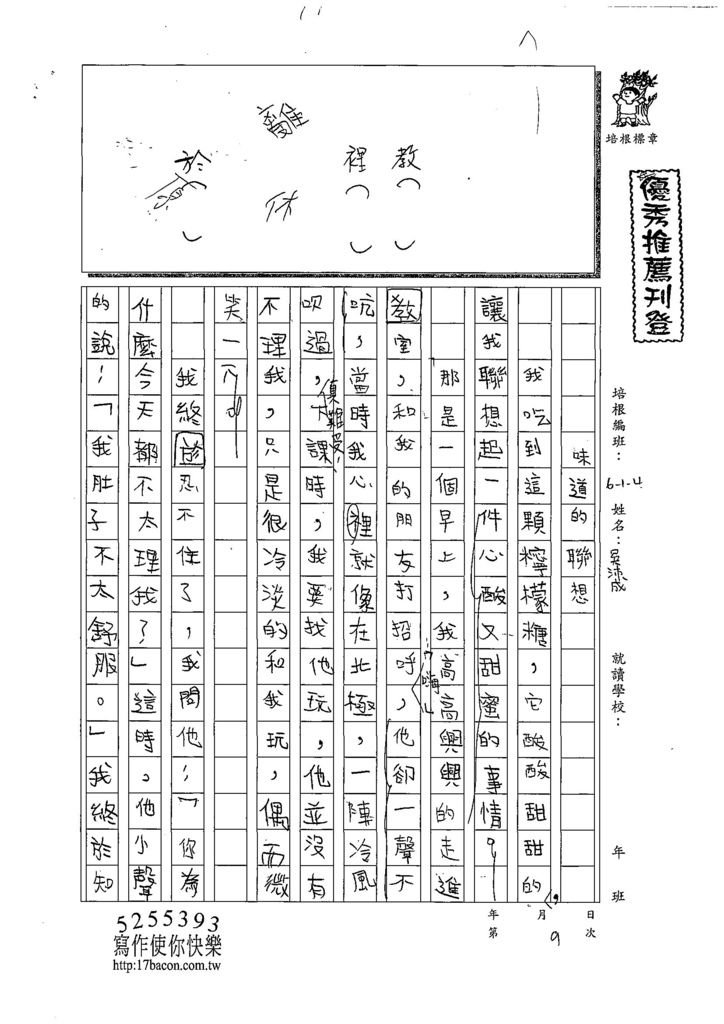 培根標章
優秀推薦刊登
培根編班：6-1-4 姓名：吳沛成 就讀學校： 年 班
年 月 日
第 9 次
教（ ）
裡（ ）
難
休
於（ ）
味道的聯想
我吃到這顆檸檬糖，它酸酸甜甜的，
讓我聯想起一件心酸又甜蜜的事情。
那是一個早上，我高高興興的走進
教室，和我的朋友打招呼，「嗨」他卻一聲不
吭，當時我心裡就像在北極，一陣冷風
吹過，真難受！下課時，我要找他玩，他並沒有
不理我，只是很冷淡的和我玩，偶而微
笑一下。
我終於忍不住了，我問他：「你為
什麼今天都不太理我？」這時，他小聲
的說：「我肚子不太舒服。」我終於知
5255393
寫作使你快樂
http:17bacon.com.tw